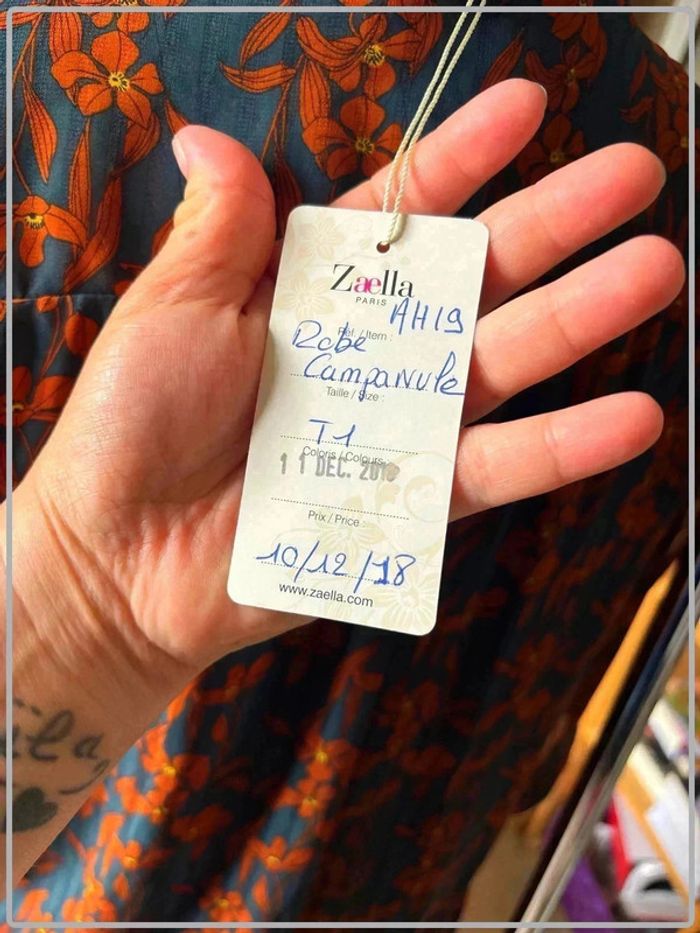 Zaella
PARIS
AH19
Réf. / Item :
Robe
Campanule
Taille / Size :
T1
Coloris / Colours :
11 DEC. 2018
Prix / Price :
10/12/18
www.zaella.com